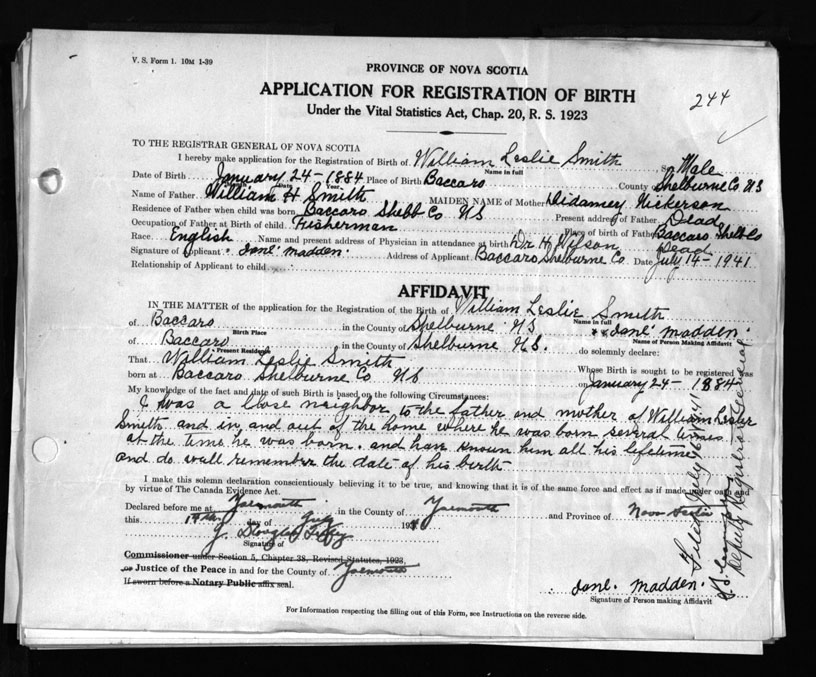 V. S. Form 1. 10M 1-39
PROVINCE OF NOVA SCOTIA
APPLICATION FOR REGISTRATION OF BIRTH
244
Under the Vital Statistics Act, Chap. 20, R. S. 1923
TO THE REGISTRAR GENERAL OF NOVA SCOTIA
I hereby make application for the Registration of Birth of William Leslie Smith Sex Male
Name in full
Date of Birth January 24 - 1884 Place of Birth Baccaro County of Shelburne Co NS
Date Year
Name of Father William H Smith MAIDEN NAME of Mother Didamey Nickerson
Residence of Father when child was born Baccaro Shelb Co NS Present address of Father Dead
Occupation of Father at Birth of child Fisherman Place of birth of Father Baccaro Shelb Co
Race English Name and present address of Physician in attendance at birth Dr H Wilson Dead
Signature of Applicant Jane Madden Address of Applicant Baccaro Shelburne Co Date July 14 - 1941
Relationship of Applicant to child
AFFIDAVIT
IN THE MATTER of the application for the Registration of the Birth of William Leslie Smith
Name in full
of Baccaro in the County of Shelburne NS Jane Madden
Birth Place Name of Person Making Affidavit
of Baccaro in the County of Shelburne N.S. do solemnly declare:
Present Residence
That William Leslie Smith Whose Birth is sought to be registered was
born at Baccaro Shelburne Co NS on January 24 - 1884
My knowledge of the fact and date of such Birth is based on the following Circumstances:
I was a close neighbor to the father and mother of William Leslie
Smith and in and out of the home where he was born several times
at the time he was born. and have known him all his lifetime
and do well remember the date of his birth
I make this solemn declaration conscientiously believing it to be true, and knowing that it is of the same force and effect as if made under oath and
by virtue of The Canada Evidence Act.
Declared before me at Yarmouth in the County of Yarmouth and Province of Nova Scotia
this 14th day of July 1941
J. Douglas
Signature of
Commissioner under Section 5, Chapter 38, Revised Statutes, 1923,
or Justice of the Peace in and for the County of Yarmouth
If sworn before a Notary Public affix seal.
Jane Madden
Signature of Person making Affidavit
For Information respecting the filling out of this Form, see Instructions on the reverse side.
Filed July
Deputy Registrar General